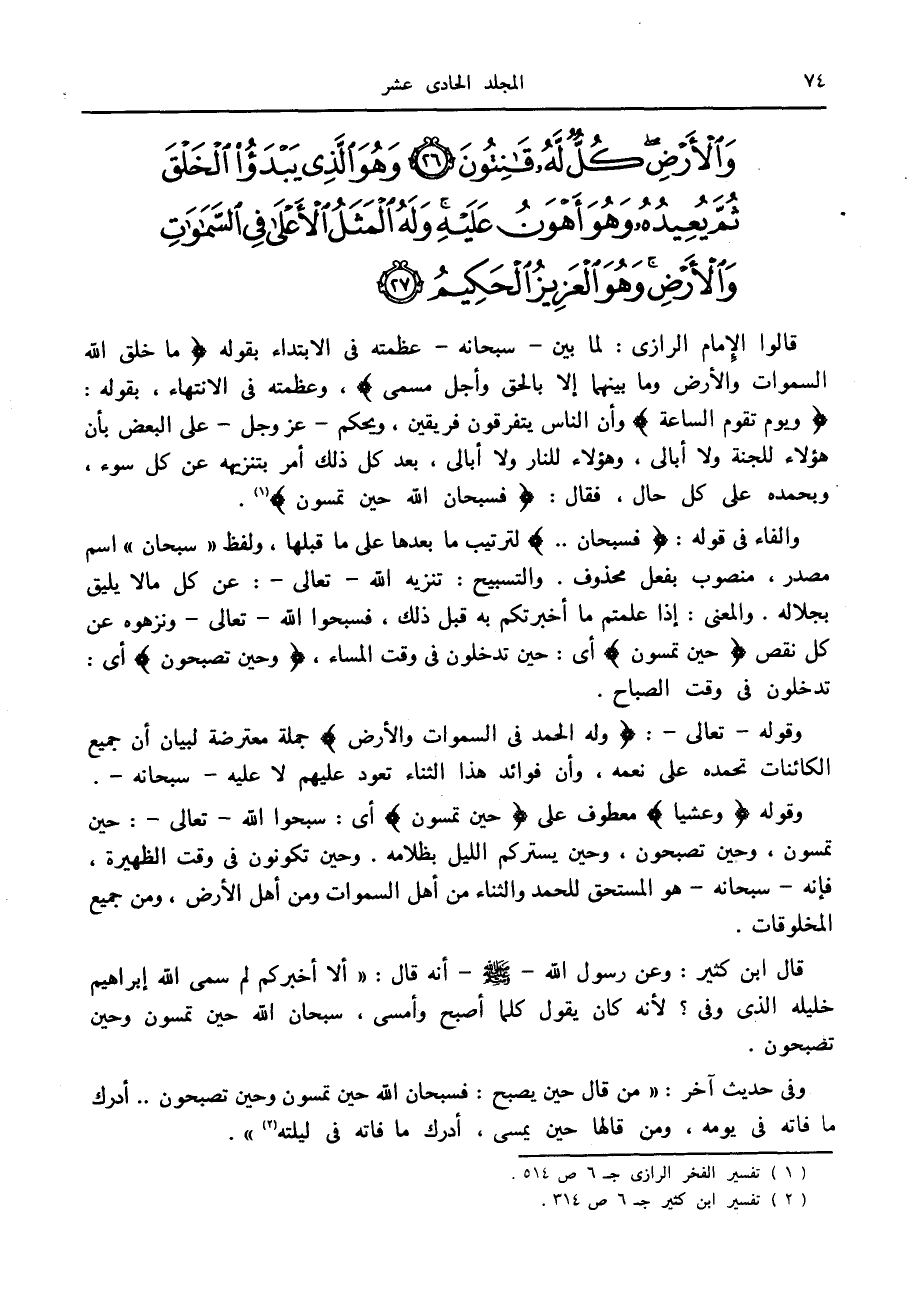 ٧٤ المجلد الحادى عشر
وَٱلْأَرْضِ ۖ كُلٌّ لَّهُۥ قَـٰنِتُونَ ٢٦ وَهُوَ ٱلَّذِى يَبْدَؤُا۟ ٱلْخَلْقَ
ثُمَّ يُعِيدُهُۥ وَهُوَ أَهْوَنُ عَلَيْهِ ۚ وَلَهُ ٱلْمَثَلُ ٱلْأَعْلَىٰ فِى ٱلسَّمَـٰوَٰتِ
وَٱلْأَرْضِ ۚ وَهُوَ ٱلْعَزِيزُ ٱلْحَكِيمُ ٢٧
قالوا الإمام الرازى : لما بين – سبحانه – عظمته فى الابتداء بقوله ﴿ ما خلق الله
السموات والأرض وما بينهما إلا بالحق وأجل مسمى ﴾ ، وعظمته فى الانتهاء ، بقوله :
﴿ ويوم تقوم الساعة ﴾ وأن الناس يتفرقون فريقين ، ويحكم – عز وجل – على البعض بأن
هؤلاء للجنة ولا أبالى ، وهؤلاء للنار ولا أبالى ، بعد كل ذلك أمر بتنزيهه عن كل سوء ،
وبحمده على كل حال ، فقال : ﴿ فسبحان الله حين تمسون ﴾(١) .
والفاء فى قوله : ﴿ فسبحان .. ﴾ لترتيب ما بعدها على ما قبلها ، ولفظ « سبحان » اسم
مصدر ، منصوب بفعل محذوف . والتسبيح : تنزيه الله – تعالى – : عن كل مالا يليق
بجلاله . والمعنى : إذا علمتم ما أخبرتكم به قبل ذلك ، فسبحوا الله – تعالى – ونزهوه عن
كل نقص ﴿ حين تمسون ﴾ أى : حين تدخلون فى وقت المساء ، ﴿ وحين تصبحون ﴾ أى :
تدخلون فى وقت الصباح .
وقوله – تعالى – : ﴿ وله الحمد فى السموات والأرض ﴾ جملة معترضة لبيان أن جميع
الكائنات تحمده على نعمه ، وأن فوائد هذا الثناء تعود عليهم لا عليه – سبحانه – .
وقوله ﴿ وعشيا ﴾ معطوف على ﴿ حين تمسون ﴾ أى : سبحوا الله – تعالى – : حين
تمسون ، وحين تصبحون ، وحين يستركم الليل بظلامه . وحين تكونون فى وقت الظهيرة ،
فإنه – سبحانه – هو المستحق للحمد والثناء من أهل السموات ومن أهل الأرض ، ومن جميع
المخلوقات .
قال ابن كثير : وعن رسول الله – ﷺ – أنه قال : « ألا أخبركم لم سمى الله إبراهيم
خليله الذى وفى ؟ لأنه كان يقول كلما أصبح وأمسى ، سبحان الله حين تمسون وحين
تصبحون .
وفى حديث آخر : « من قال حين يصبح : فسبحان الله حين تمسون وحين تصبحون .. أدرك
ما فاته فى يومه ، ومن قالها حين يمسى ، أدرك ما فاته فى ليلته(٢) » .
( ١ ) تفسير الفخر الرازى جـ ٦ ص ٥١٤ .
( ٢ ) تفسير ابن كثير جـ ٦ ص ٣١٤ .